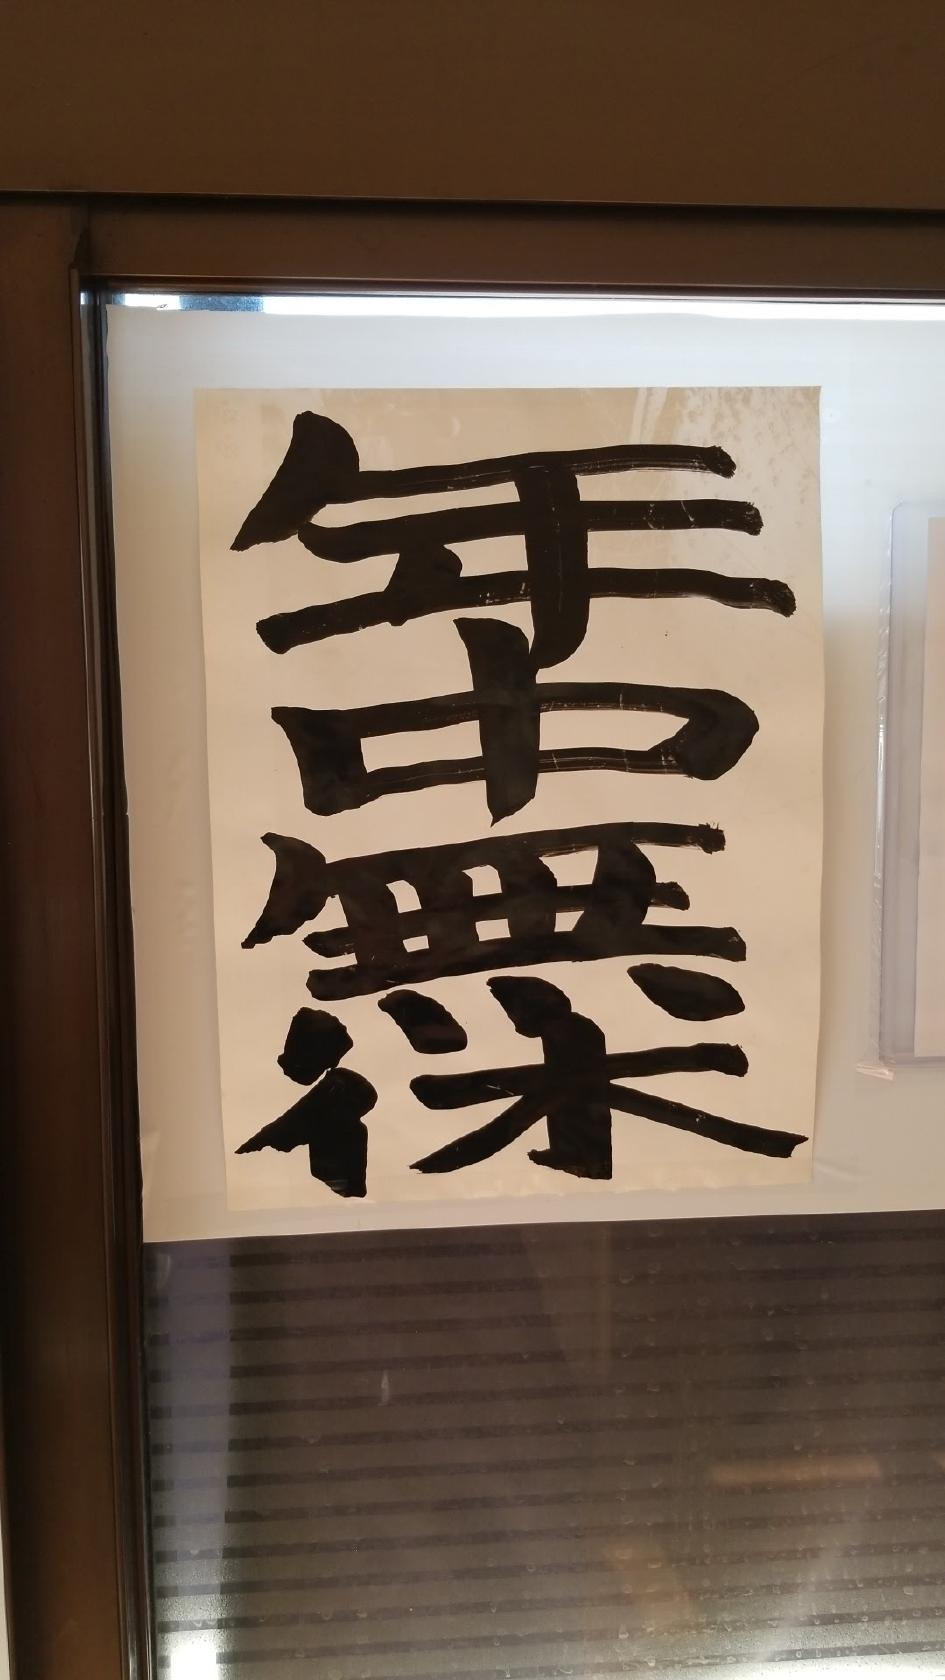 年中無休